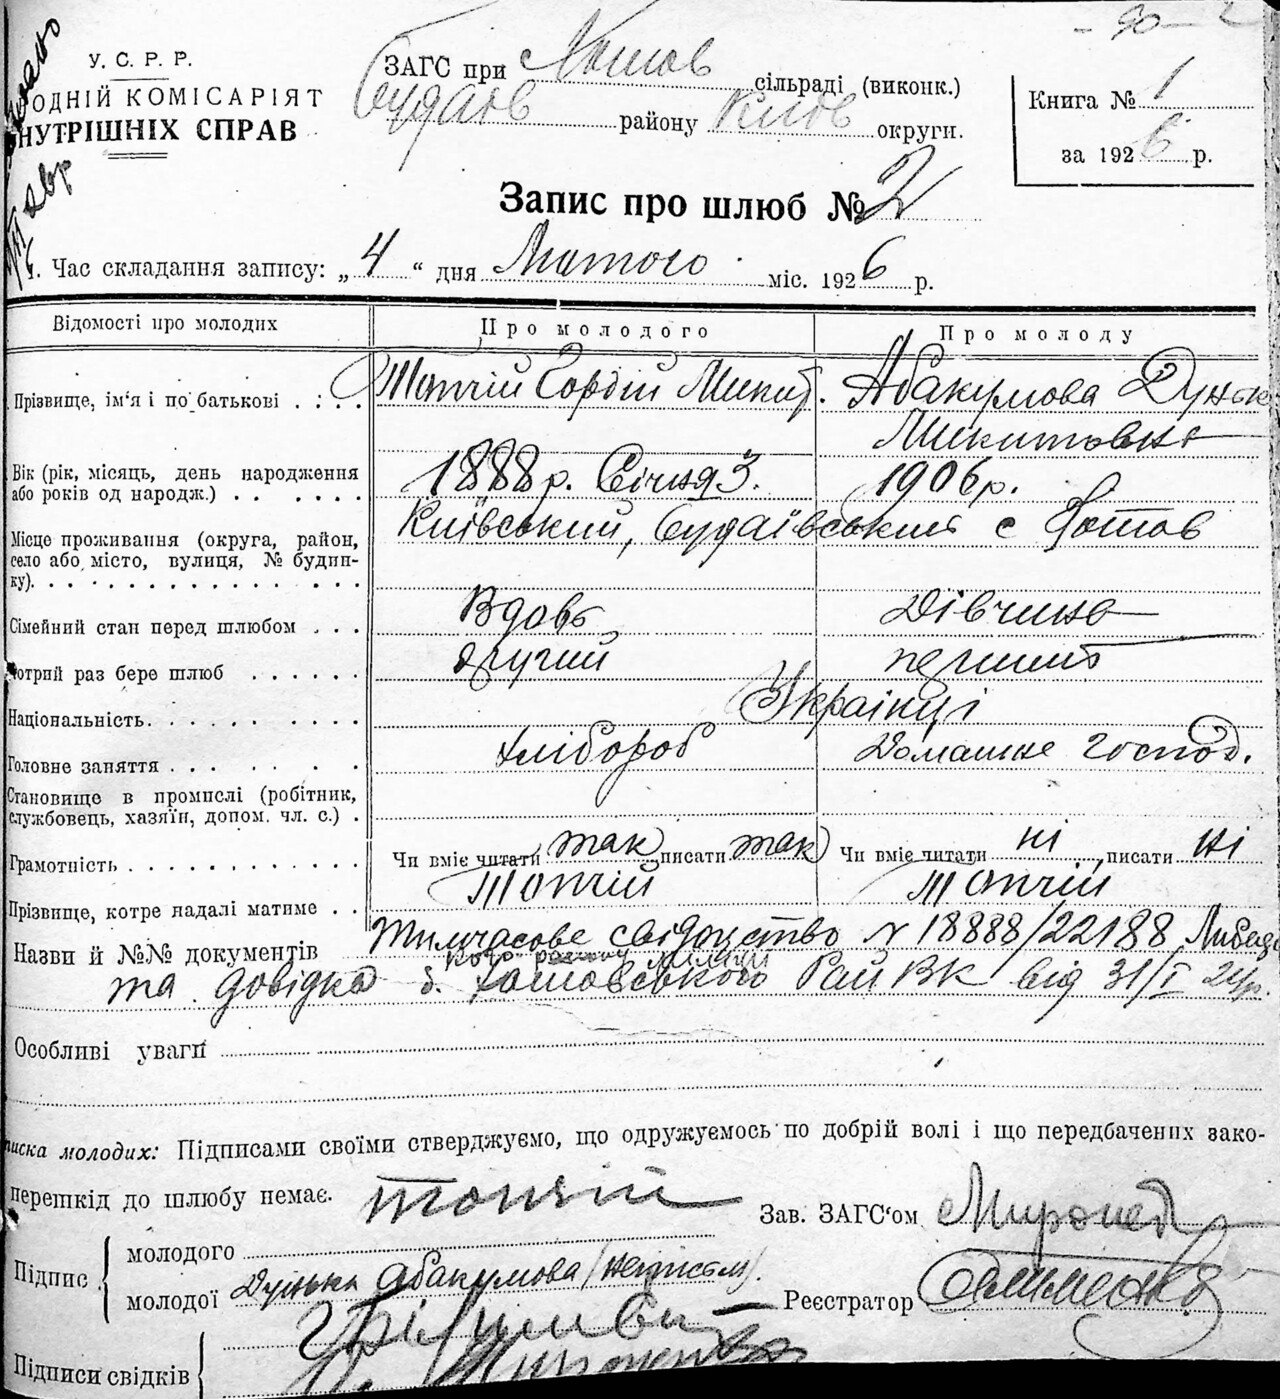 У. С. Р. Р.
ОДНІЙ КОМІСАРІЯТ
НУТРІШНІХ СПРАВ
ЗАГС при Хотов сільраді (виконк.)
Будаїв району Київ округи.
Книга № 1
за 1926 р.
- 90 - 2
Запис про шлюб № 2
1. Час складання запису: „4“ дня Лютого міс. 1926 р.
Відомості про молодих Про молодого Про молоду
Прізвище, ім'я і по батькові . . . . Топчій Гордій Микит. Абакумова Дуньк
Микитовна
Вік (рік, місяць, день народження 1888 р. Січня 3. 1906 р.
або років од народж.) . . . . . .
Місце проживання (округа, район, Київський, Будаївський с Хотов
село або місто, вулиця, № будин-
ку). . . . . . . . . . . . . . .
Сімейний стан перед шлюбом . . . Вдова Дівчина
отрий раз бере шлюб . . . . . . другий перший
Національність. . . . . . . . . Українці
Головне заняття . . . . . . . . хлібороб Домашнє господ.
Становище в промислі (робітник,
службовець, хазяїн, допом. чл. с.) .
Грамотність . . . . . . . . . . Чи вміє читати так писати так Чи вміє читати ні, писати ні
Прізвище, котре надалі матиме . . Топчій Топчій
Назви й №№ документів Тимчасове свідоцтво № 18888/22188 Либедс
кого району міліції
та довідка Хотовського РайВК від 31/I 24р.
Особливі уваги
иска молодих: Підписами своїми стверджуємо, що одружуємось по добрій волі і що передбачених зако-
перешкід до шлюбу немає. Топчій
Зав. ЗАГС'ом
Підпис { молодого
молодої Дунька Абакумова (неписьм).
Реєстратор
Підписи свідків {